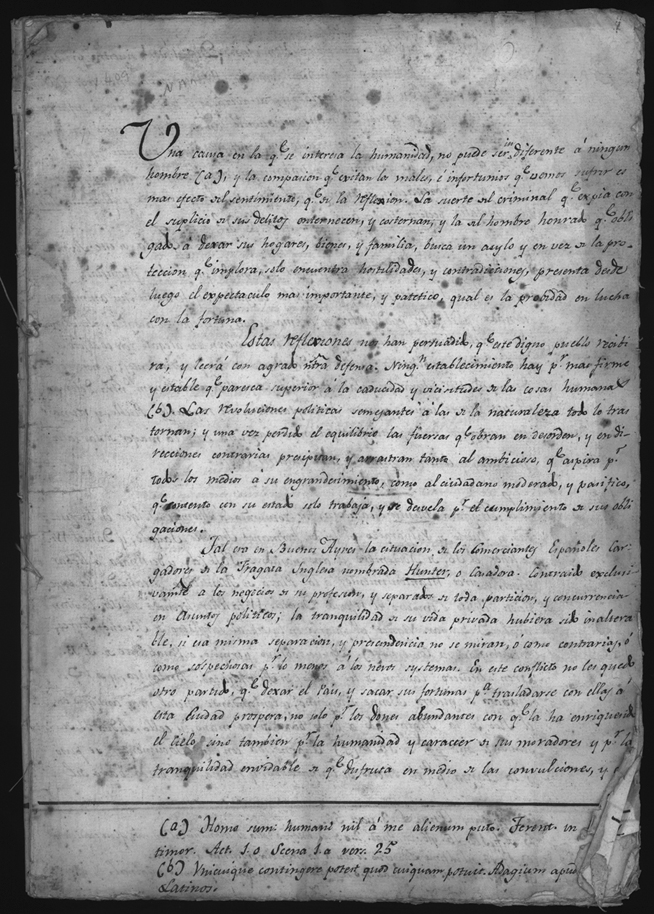 Una causa en la q.e se interesa la humanidad, no puede ser indiferente á ningun
hombre (a), y la compacion q.e exitan los males, é infortunios q.e vemos sufrir es
mas efecto del sentimiento, q.e de la reflexion. La suerte del criminal q.e expia con
el suplicio de sus delitos enternecen, y costernan, y la del hombre honrado q.e obli
gado á dexar sus hogares, bienes, y familia, busca un asylo y en vez de la pro-
teccion q.e implora, solo encuentra hostilidades, y contradicciones, presenta desde
luego el expectaculo mas importante, y patetico, qual es la probidad en lucha
con la fortuna.
Estas reflexiones nos han persuadido, q.e este digno pueblo recibi
rá, y leerá con agrado ntra defensa. Ning.n establecimiento hay p.r mas firme
y estable q.e paresca superior á la caducidad y vicisitudes de las cosas humanas
(b). Las revoluciones politicas semejantes á las de la naturaleza todo lo tras
tornan; y una vez perdido el equilibrio las fuersas q.e obran en desorden, y en di-
recciones contrarias presipitan, y arrastran tanto al ambicioso, q.e aspira p.r
todos los medios á su engrandecimiento, como al ciudadano moderado, y pacifico,
q.e contento con su estado solo trabaja, y se desvela p.r el cumplimiento de sus obli
gaciones.
Tal era en Buenos Ayres la cituacion de los Comerciantes Españoles Car-
gadores de la Fragata Inglesa nombrada Hunter, o Casadora. Contraido exclusi
vam.te a los negocios de su profesion, y separados de toda particion, y concurrencia
en Asuntos politicos; la tranquilidad de su vida privada hubiera sido inaltera
ble, si esa misma separacion, y presendencia no se miran, ó como contrarias, ó
como sospechosas p.r lo menos á los nuevos systemas. En este conflicto no les quedo
otro partido, q.e dexar el Pais, y sacar sus fortunas p.a trasladarse con ellas á
esta Ciudad prospera, no solo p.r los dones abundantes con q.e la ha enriquecido
el Cielo, sino tambien p.r la humanidad y caracter de sus moradores y p.r la
tranquilidad envidable de q.e disfruta en medio de las convulciones, y
(a) Homo sum: humani nil á me alienum puto. Terent. in
timor. Act. 1.o Scena 1.a vers. 25
(b) Unicuique contingere potest quod cuiquam potuit. Adagium apud
Latinos.